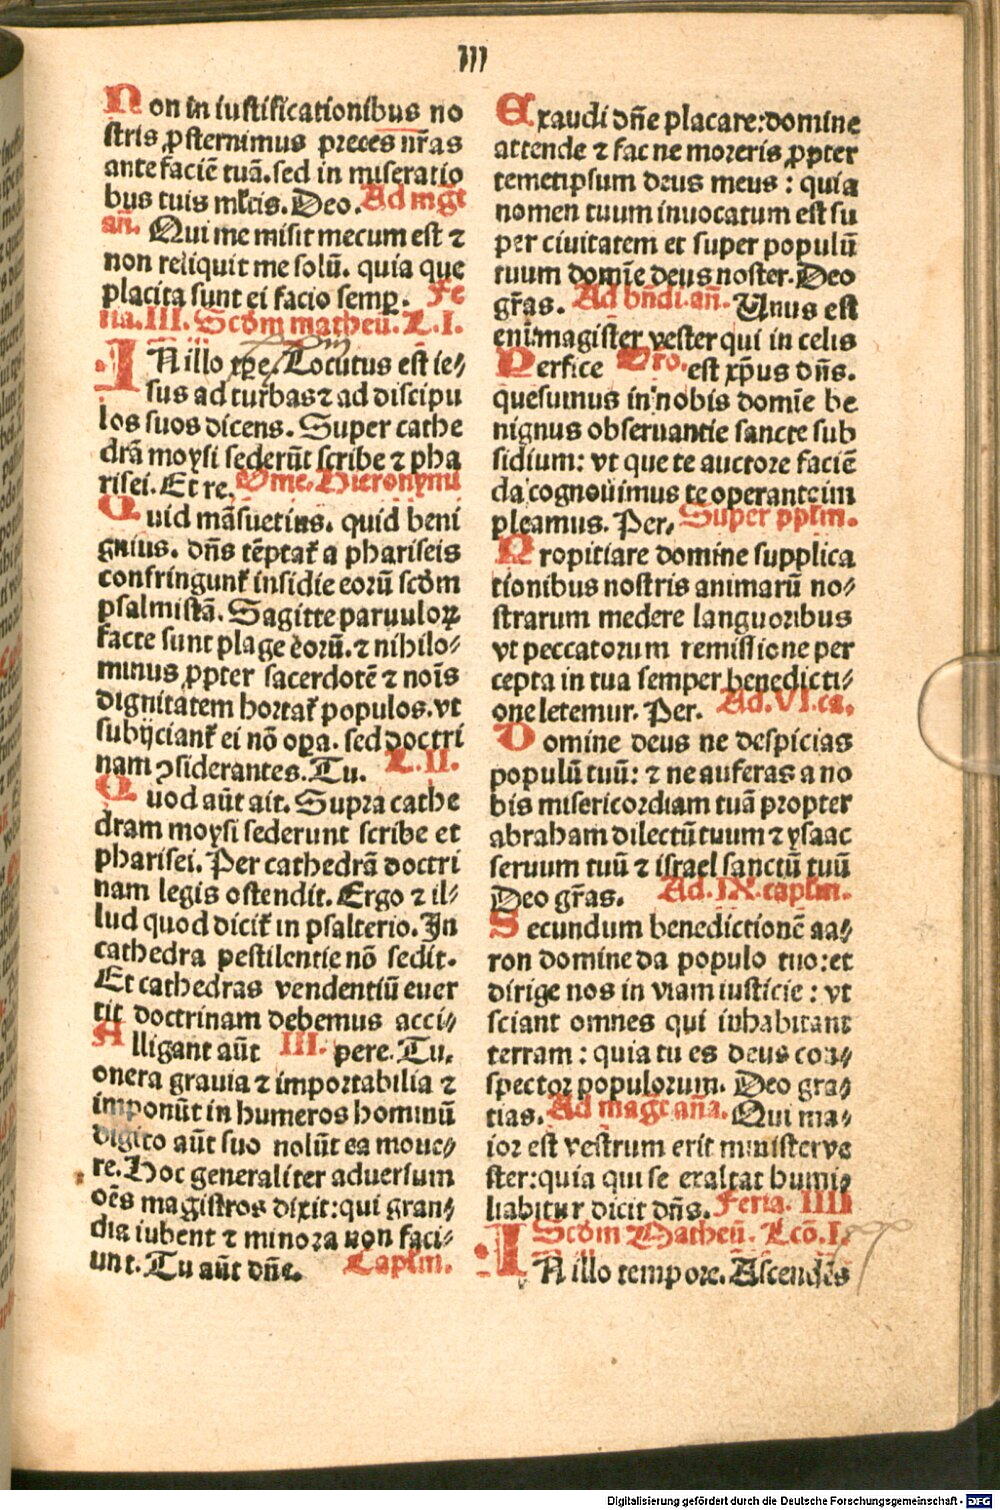 III
Non in iustificationibus no
stris ꝓsternimus preces nr̄as
ante faciē tuā. sed in miseratio
bus tuis ml̄tis. Deo. Ad mgt̄
an̄. Qui me misit mecum est ⁊
non reliquit me solū. quia que
placita sunt ei facio semꝑ. Fe
ria. III. Scd̄m matheū. L. I.
IN illo tꝑe. Locutus est ie⸗
sus ad turbas ⁊ ad discipu
los suos dicens. Super cathe
drā moysi sederūt scribe ⁊ pha
risei. Et re. Ome. Hieronymi
Quid māsuetius. quid beni
gnius. dn̄s tēptat᷑ a phariseis
confringunt᷑ insidie eorū scd̄m
psalmistā. Sagitte paruuloꝝ
facte sunt plage eorū. ⁊ nihilo⸗
minus ꝓpter sacerdotē ⁊ nois̄
dignitatem hortat᷑ populos. vt
subijciant᷑ ei nō oꝑa. sed doctri
nam ꝯsiderantes. Tu. L. II.
Quod aūt ait. Supra cathe
dram moysi sederunt scribe et
pharisei. Per cathedrā doctri
nam legis ostendit. Ergo ⁊ il⸗
lud quod dicit᷑ in psalterio. In
cathedra pestilentie nō sedit.
Et cathedras vendentiū euer
tit doctrinam debemus acci⸗
Alligant aūt III. pere. Tu.
onera grauia ⁊ importabilia ⁊
imponūt in humeros hominū
digito aūt suo nolūt ea moue⸗
re. Hoc generaliter aduersum
oēs magistros dixit: qui gran⸗
dia iubent ⁊ minora non faci⸗
unt. Tu aūt dn̄e. Capl̄m.
Exaudi dn̄e placare: domine
attende ⁊ fac ne moreris ꝓpter
temetipsum deus meus: quia
nomen tuum inuocatum est su
per ciuitatem et super populū
tuum domīe deus noster. Deo
gr̄as. Ad bn̄di. an̄. Unus est
eni magister vester qui in celis
Perfice Oro. est xp̄us dn̄s.
quesumus in nobis domīe be
nignus obseruantie sancte sub
sidium: vt que te auctore faciē
da cognouimus te operante im
pleamus. Per. Super ppl̄m.
Propitiare domine supplica
tionibus nostris animarū no⸗
strarum medere languoribus
vt peccatorum remissione per
cepta in tua semper benedicti⸗
one letemur. Per. Ad. VI. ca.
Domine deus ne despicias
populū tuū: ⁊ ne auferas a no
bis misericordiam tuā propter
abraham dilectū tuum ⁊ ysaac
seruum tuū ⁊ israel sanctū tuū
Deo gr̄as. Ad. IX. capl̄m.
Secundum benedictionē aa⸗
ron domine da populo tuo: et
dirige nos in viam iusticie: vt
sciant omnes qui inhabitant
terram: quia tu es deus con⸗
spector populorum. Deo gra⸗
tias. Ad magt̄ aña. Qui ma⸗
ior est vestrum erit minister ve
ster: quia qui se exaltat humi⸗
liabitur dicit dn̄s. Feria. IIII
Scd̄m Matheū. Lcō. I.
IN illo tempore. Ascendēs
Digitalisierung gefördert durch die Deutsche Forschungsgemeinschaft - DFG